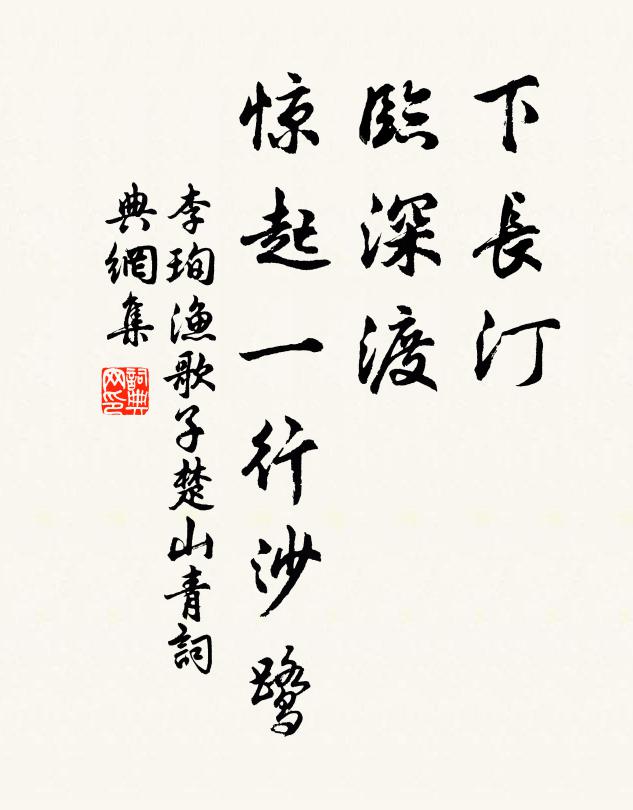 下長汀
臨深渡
惊起一行沙鹭
李珣漁歌子楚山青詞
典網集
詞典
网印